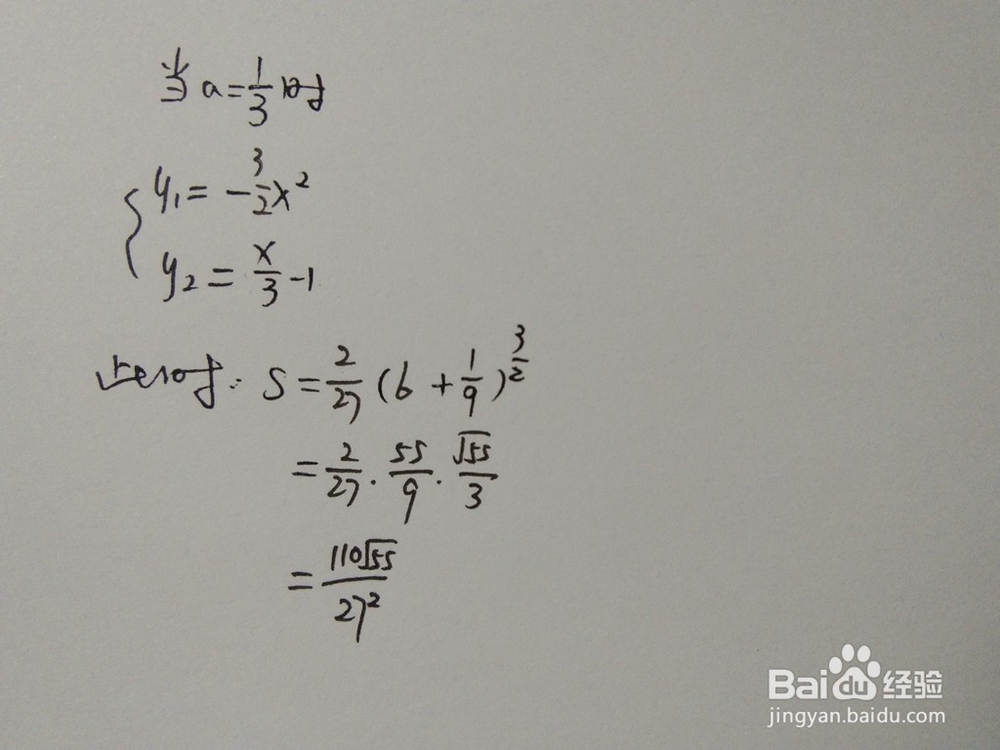 当a=1/3时
y₁=-3/2x²
y₂=x/3-1
此时: S=2/27(6+1/9)^(3/2)
=2/27·55/9·√55/3
=110√55/27²
Baidu经验
jingyan.baidu.com